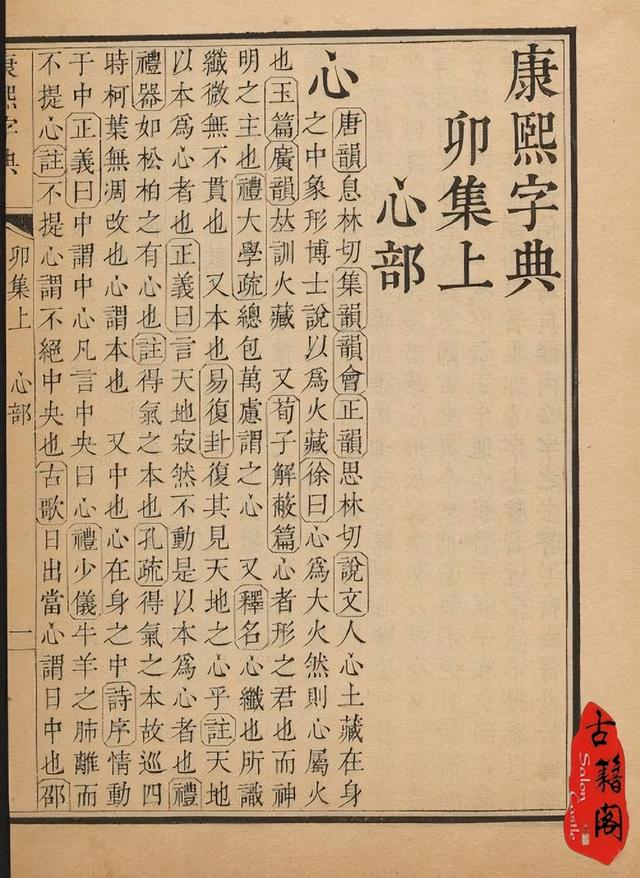 康熙字典
卯集上
心部
心
唐韻息林切集韻韻會正韻思林切說文人心土藏在身
之中象形博士說以爲火藏徐曰心爲大火然則心屬火
也玉篇廣韻𠀤訓火藏 又荀子解蔽篇心者形之君也而神
明之主也禮大學疏總包萬慮謂之心 又釋名心纖也所識
纖微無不貫也 又本也易復卦復其見天地之心乎註天地
以本爲心者也正義曰言天地寂然不動是以本爲心者也禮
禮器如松柏之有心也註得氣之本也孔疏得氣之本故巡四
時柯葉無凋改也心謂本也 又中也心在身之中詩序情動
于中正義曰中謂中心凡言中央曰心禮少儀牛羊之肺離而
不提心註不提心謂不絕中央也古歌日出當心謂日中也邵
康熙字典 卯集上 心部 一
古籍阁
Salon Castle